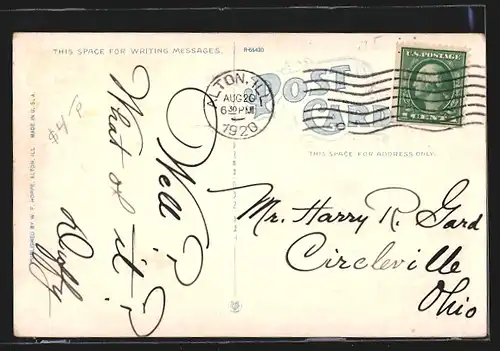 THIS SPACE FOR WRITING MESSAGES.
R-66430
POST
CARD
ALTON, ILL.
AUG 26
6 30 PM
1920
U.S. POSTAGE
1 CENT 1
THIS SPACE FOR ADDRESS ONLY.
Well?
What of it?
Mr. Harry R. Gard
Circleville
Ohio
PUBLISHED BY W. F. HOPPE, ALTON, ILL. MADE IN U.S.A.